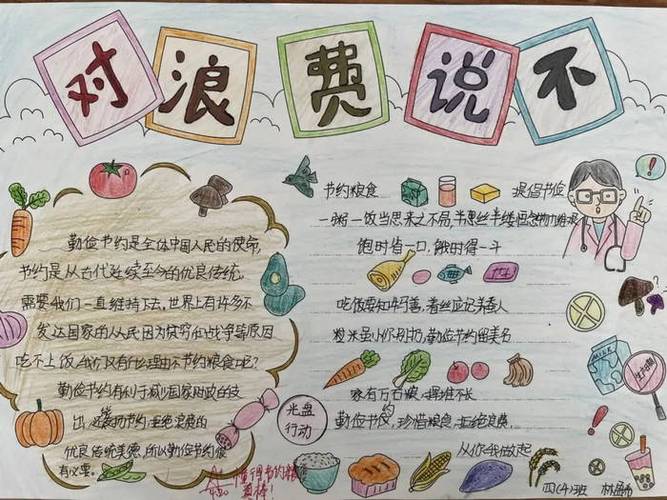 对浪费说不
勤俭节约是全体中国人民的使命,
节约是从古代延续至今的优良传统.
需要我们一直维持下去,世界上有许多不
发达国家的人民因为贫穷和战争等原因
吃不上饭,我们又有什么理由不节约粮食呢?
勤俭节约有利于减少国家财政的支
出,
优良传统美德,所以勤俭节约很
有必要.
节约粮食
提倡节俭
一粥一饭当思来之不易,半丝半缕恒念物力维艰
饱时省一口,饿时得一斗
吃饭要知牛马善,着丝应记养蚕人
粒米虽小不可扔,勤俭节约留美名
家有万石粮,挥霍不长
勤俭节约,珍惜粮食,拒绝浪费.
从你我做起
光盘
行动
MILK
四(4)班